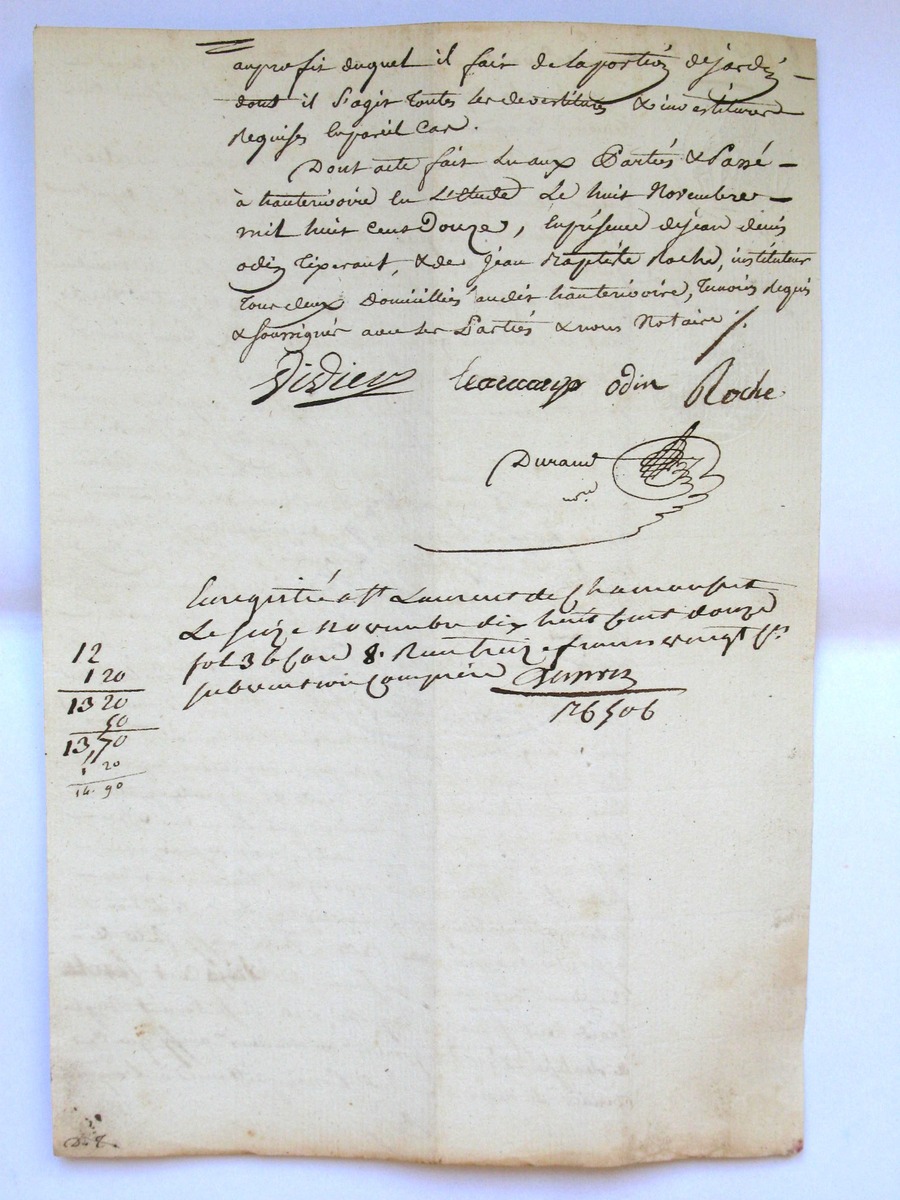 au profit duquel il fait de la portion de jardin
dont il s'agit toutes les devestitures & investitures
Requises En pareil Cas.
Dont acte fait Lu aux Parties & Passé
à hauterivoire En L'Etude Le huit Novembre
mil huit Cent Douze, En présence de jean denis
odin &de jean Baptiste Roche, instituteur
tous deux Domiciliés audit hauterivoire, Temoins Requis
& soussignés avec les Parties & nous Notaire ./.
Didier odin Roche
Durand
nre
Enregistré a st Laurent de Chamousset
Le seize novembre dix huit Cent douze
fol 36 Case 8. Reçu treize francs vingt Cs
subvention Comprise
126506
12
1 20
13 20
50
13,70
1 20
14. 90